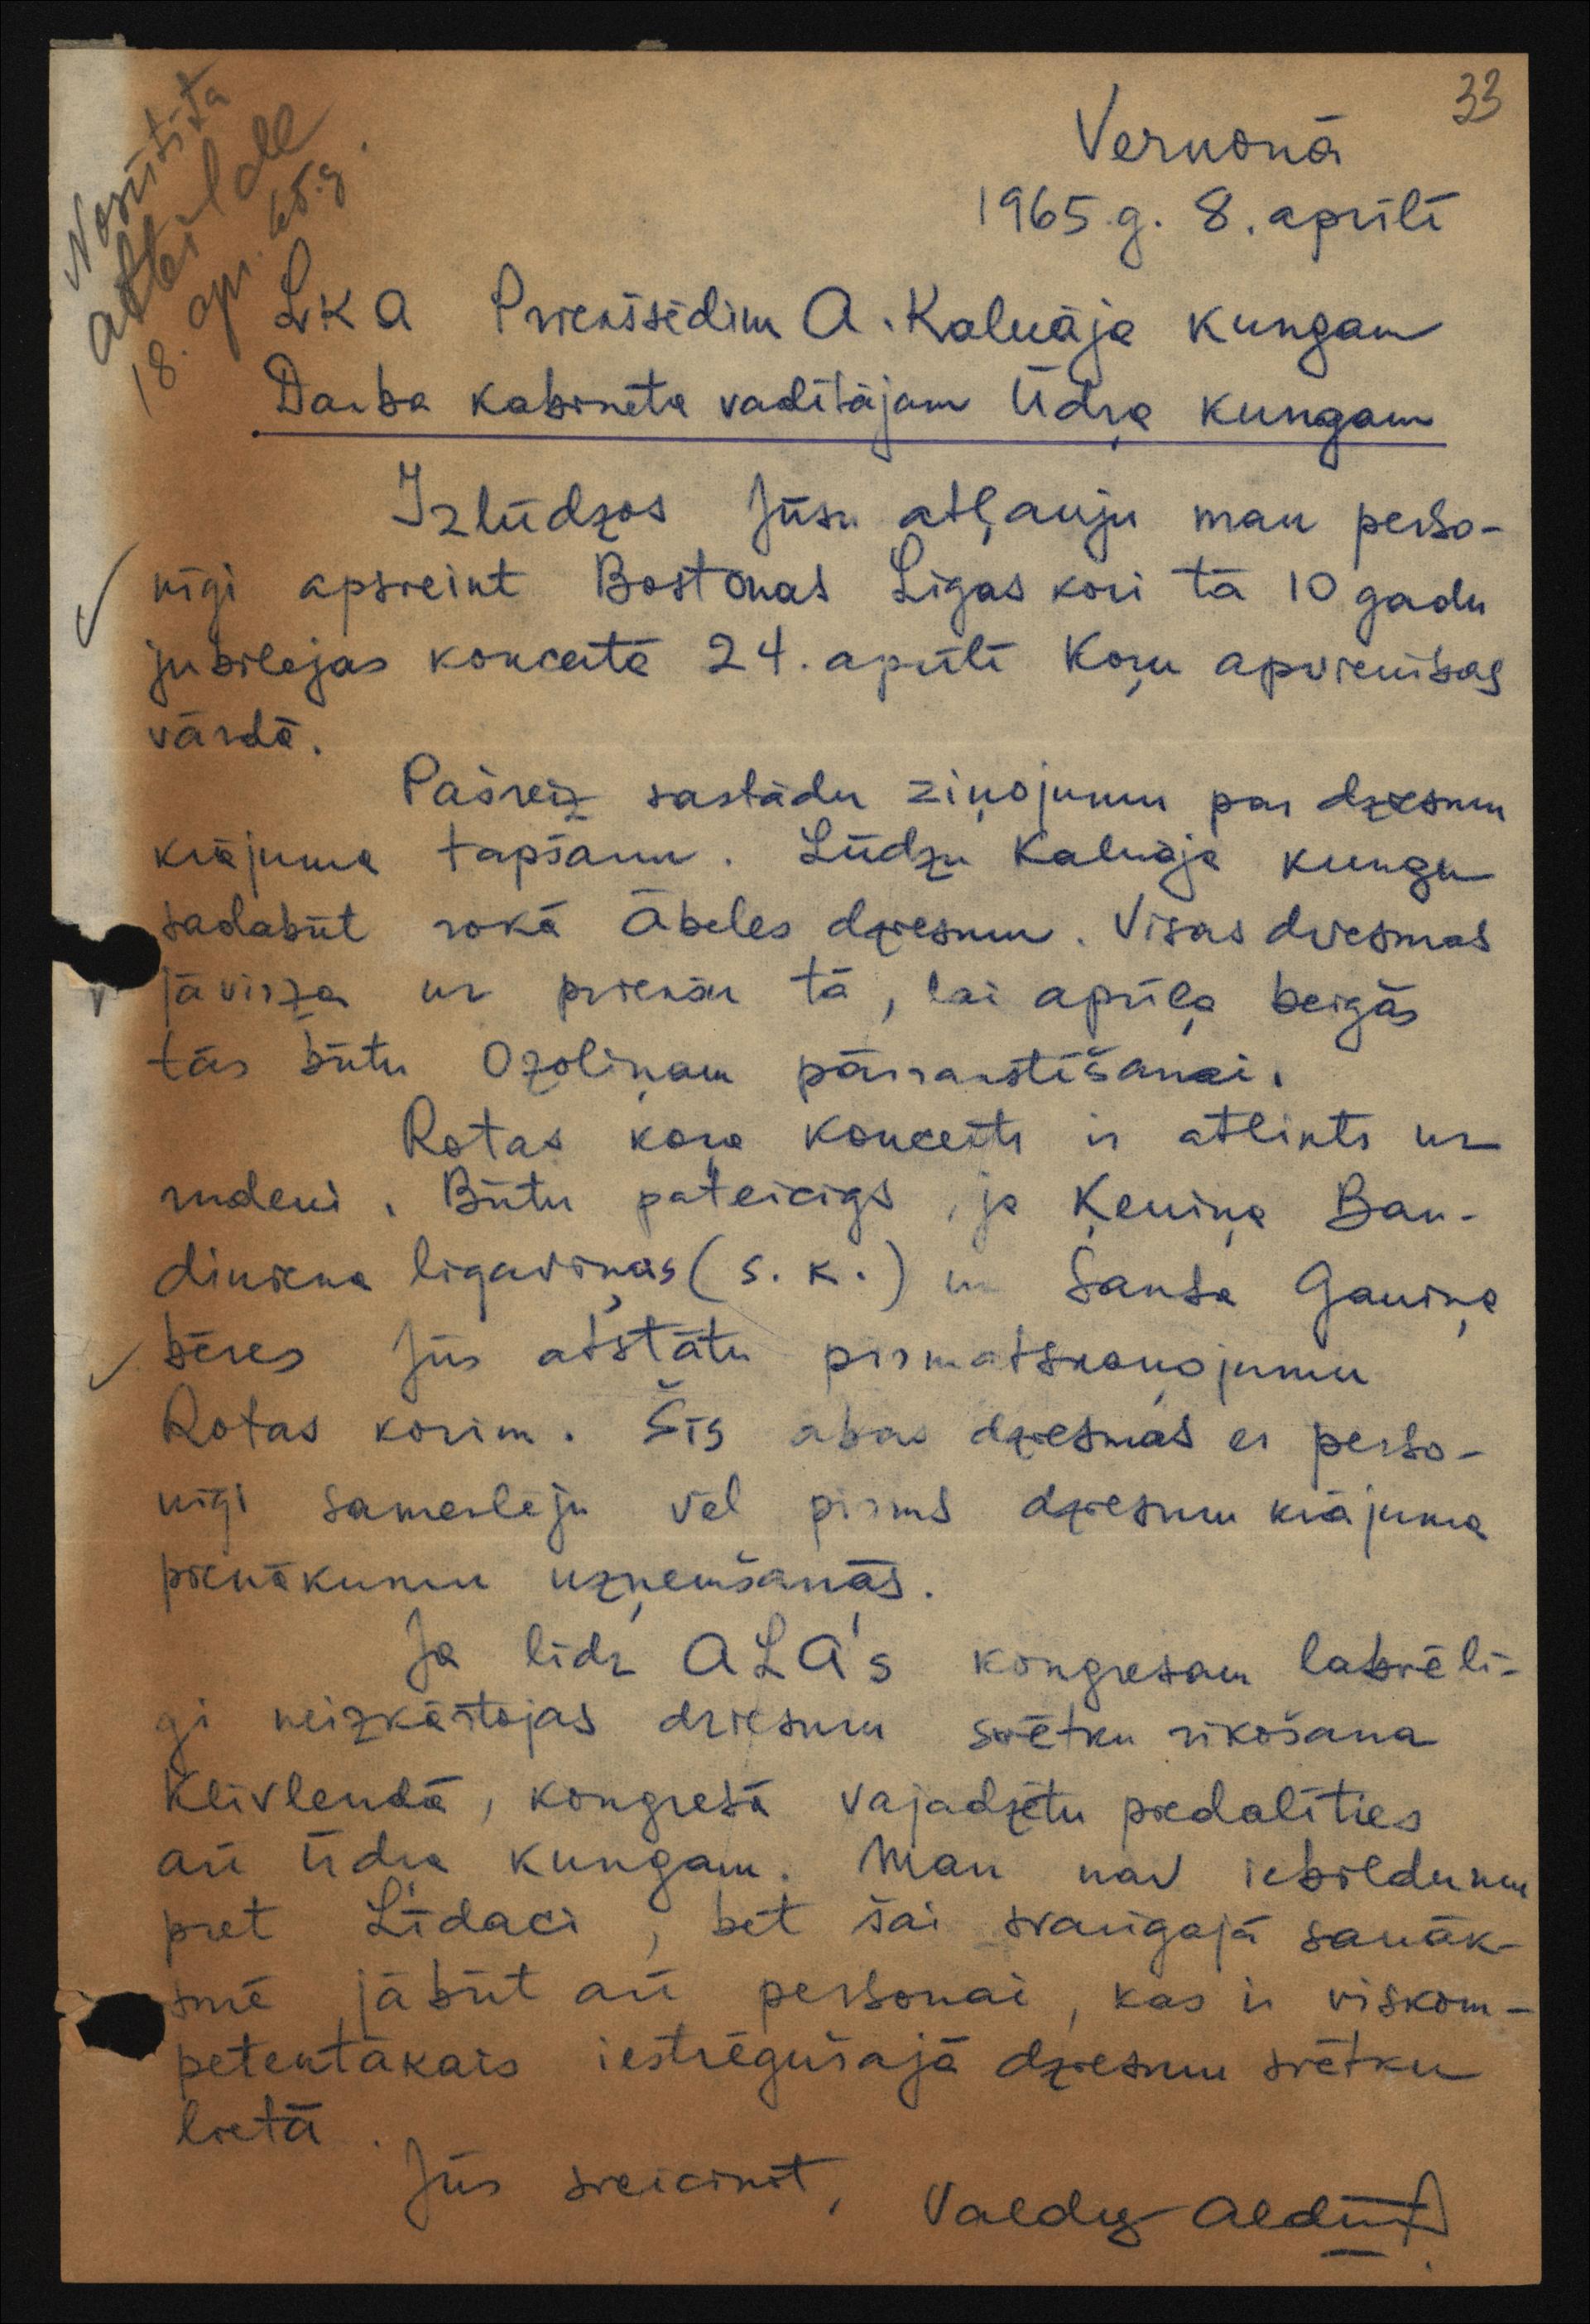 33
Nosūtīta
atbilde
18. apr. 65.g.
Vernonā
1965.g. 8. aprīlī
LKA Priekšsēdim A. Kalnāja kungam
Darba kabineta vadītājam Ūdŗa kungam
Izlūdzos Jūsu atļauju man perso-
nīgi apsveikt Bostonas Līgas kori tā 10 gadu
jubilejas koncertā 24. aprīlī Koŗu apvienības
vārdā.
Pašreiz sastādu ziņojumu par dziesmu
krājuma tapšanu. Lūdzu Kalnāja kungu
sadabūt rokā Ābeles dziesmu. Visas dziesmas
jāvirza uz priekšu tā, lai aprīļa beigās
tās būtu Ozoliņam pārrakstīšanai.
Rotas koŗa koncerts ir atlikts uz
rudeni. Būtu pateicīgs, ja Ķeniņa Ban-
diniena ligaviņas (s. k.) un Sakša Ganiņa
bēres Jūs atstātu pirmatskaņojumu
Rotas korim. Šīs abas dziesmas es perso-
nīgi sameklēju vēl pirms dziesmu krājuma
pienākumu uzņemšanās.
Ja līdz ALA's kongresam labvēlī-
gi neizkārtojas dziesmu svētku rīkošana
Klīvlendā, kongresā vajadzētu piedalīties
arī Ūdŗa kungam. Man nav iebildumu
pret Līdaci, bet šai svarīgajā sanāk-
smē jābūt arī personai, kas ir viskom-
petentākais iestrēgušajā dziesmu svētku
lietā.
Jūs sveicinot, Valdy Aldiņš